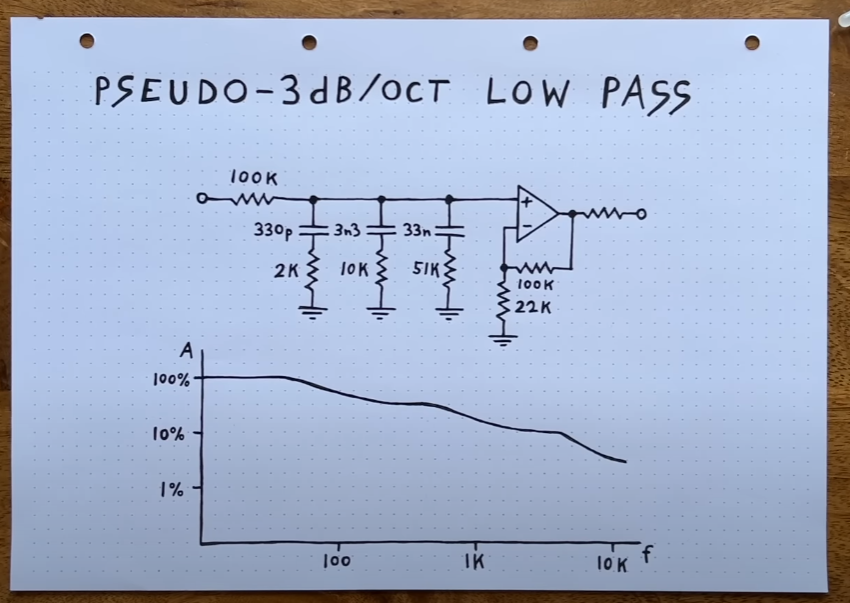 PSEUDO-3dB/OCT LOW PASS
100K
+
330p 3n3 33n
-
2K 10K 51K
100K
22K
A
100%
10%
1%
100 1K 10K f